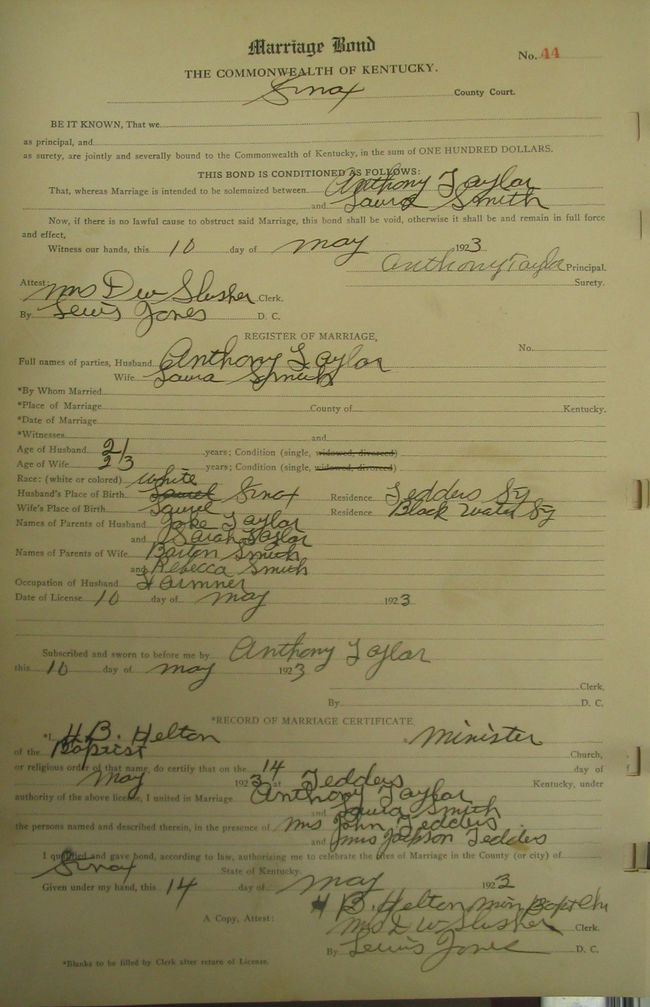 Marriage Bond
No. 44
THE COMMONWEALTH OF KENTUCKY.
Knox County Court.
BE IT KNOWN, That we
as principal, and
as surety, are jointly and severally bound to the Commonwealth of Kentucky, in the sum of ONE HUNDRED DOLLARS.
THIS BOND IS CONDITIONED AS FOLLOWS:
That, whereas Marriage is intended to be solemnized between Anthony Taylor
and Laura Smith
Now, if there is no lawful cause to obstruct said Marriage, this bond shall be void, otherwise it shall be and remain in full force
and effect,
Witness our hands, this 10 day of may 1923
Anthony Taylor Principal.
Surety.
Attest: Mrs D W Slusher Clerk.
By Lewis Jones D. C.
REGISTER OF MARRIAGE,
No.
Full names of parties, Husband Anthony Taylor
Wife Laura Smith
*By Whom Married
*Place of Marriage County of Kentucky.
*Date of Marriage
*Witnesses and
Age of Husband 21 years; Condition (single, widowed, divorced)
Age of Wife 23 years; Condition (single, widowed, divorced)
Race: (white or colored) White
Husband's Place of Birth Laurel Knox Residence Tedders Ky
Wife's Place of Birth Laurel Residence Black Water Ky
Names of Parents of Husband Joke Taylor
and Sarah Taylor
Names of Parents of Wife Barton Smith
and Rebecca Smith
Occupation of Husband Farmner
Date of License 10 day of may 1923
Subscribed and sworn to before me by Anthony Taylor
this 10 day of may 1923
Clerk,
By D. C.
*RECORD OF MARRIAGE CERTIFICATE
*I, H B. Helton minister
of the Baptist Church,
or religious order of that name, do certify that on the 14 day of
may 1923 at Tedders Kentucky, under
authority of the above license, I united in Marriage Anthony Taylor
and Laura Smith
the persons named and described therein, in the presence of Mrs John Tedders
and Mrs Tedders
I qualified and gave bond, according to law, authorizing me to celebrate the rites of Marriage in the County (or city) of
Knox State of Kentucky.
Given under my hand, this 14 day of may 1923
H B. Helton min Bapt Chu
A Copy, Attest: Mrs D W Slusher Clerk.
By Lewis Jones D. C.
*Blanks to be filled by Clerk after return of License.